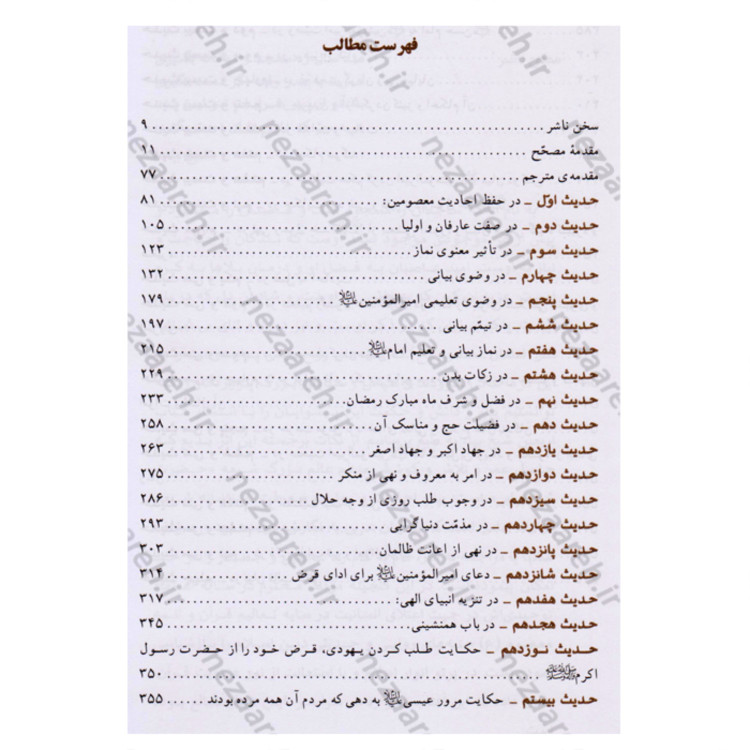 فهرست مطالب
سخن ناشر ........................ ۹
مقدمهٔ مصحّح ........................ ۱۱
مقدمه‌ی مترجم ........................ ۷۷
حدیث اوّل ـ در حفظ احادیث معصومین: ........................ ۸۱
حدیث دوم ـ در صفت عارفان و اولیا ........................ ۱۰۵
حدیث سوم ـ در تأثیر معنوی نماز ........................ ۱۲۳
حدیث چهارم ـ در وضوی بیانی ........................ ۱۳۲
حدیث پنجم ـ در وضوی تعلیمی امیرالمؤمنین علیه‌السلام ........................ ۱۷۹
حدیث ششم ـ در تیمّم بیانی ........................ ۱۹۷
حدیث هفتم ـ در نماز بیانی و تعلیم امام علیه‌السلام ........................ ۲۱۵
حدیث هشتم ـ در زکات بدن ........................ ۲۲۹
حدیث نهم ـ در فضل و شرف ماه مبارک رمضان ........................ ۲۳۳
حدیث دهم ـ در فضیلت حج و مناسک آن ........................ ۲۵۸
حدیث یازدهم ـ در جهاد اکبر و جهاد اصغر ........................ ۲۶۳
حدیث دوازدهم ـ در امر به معروف و نهی از منکر ........................ ۲۷۵
حدیث سیزدهم ـ در وجوب طلب روزی از وجه حلال ........................ ۲۸۶
حدیث چهاردهم ـ در مذمّت دنیاگرایی ........................ ۲۹۳
حدیث پانزدهم ـ در نهی از اعانت ظالمان ........................ ۳۰۳
حدیث شانزدهم ـ دعای امیرالمؤمنین علیه‌السلام برای ادای قرض ........................ ۳۱۴
حدیث هفدهم ـ در تنزیه انبیای الهی: ........................ ۳۱۷
حدیث هجدهم ـ در باب همنشینی ........................ ۳۴۵
حدیث نوزدهم ـ حکایت طلب کردن یهودی، قرض خود را از حضرت رسول
اکرم ﷺ ........................ ۳۵۰
حدیث بیستم ـ حکایت مرور عیسی علیه‌السلام به دهی که مردم آن همه مرده بودند ...... ۳۵۵
nezaareh.ir